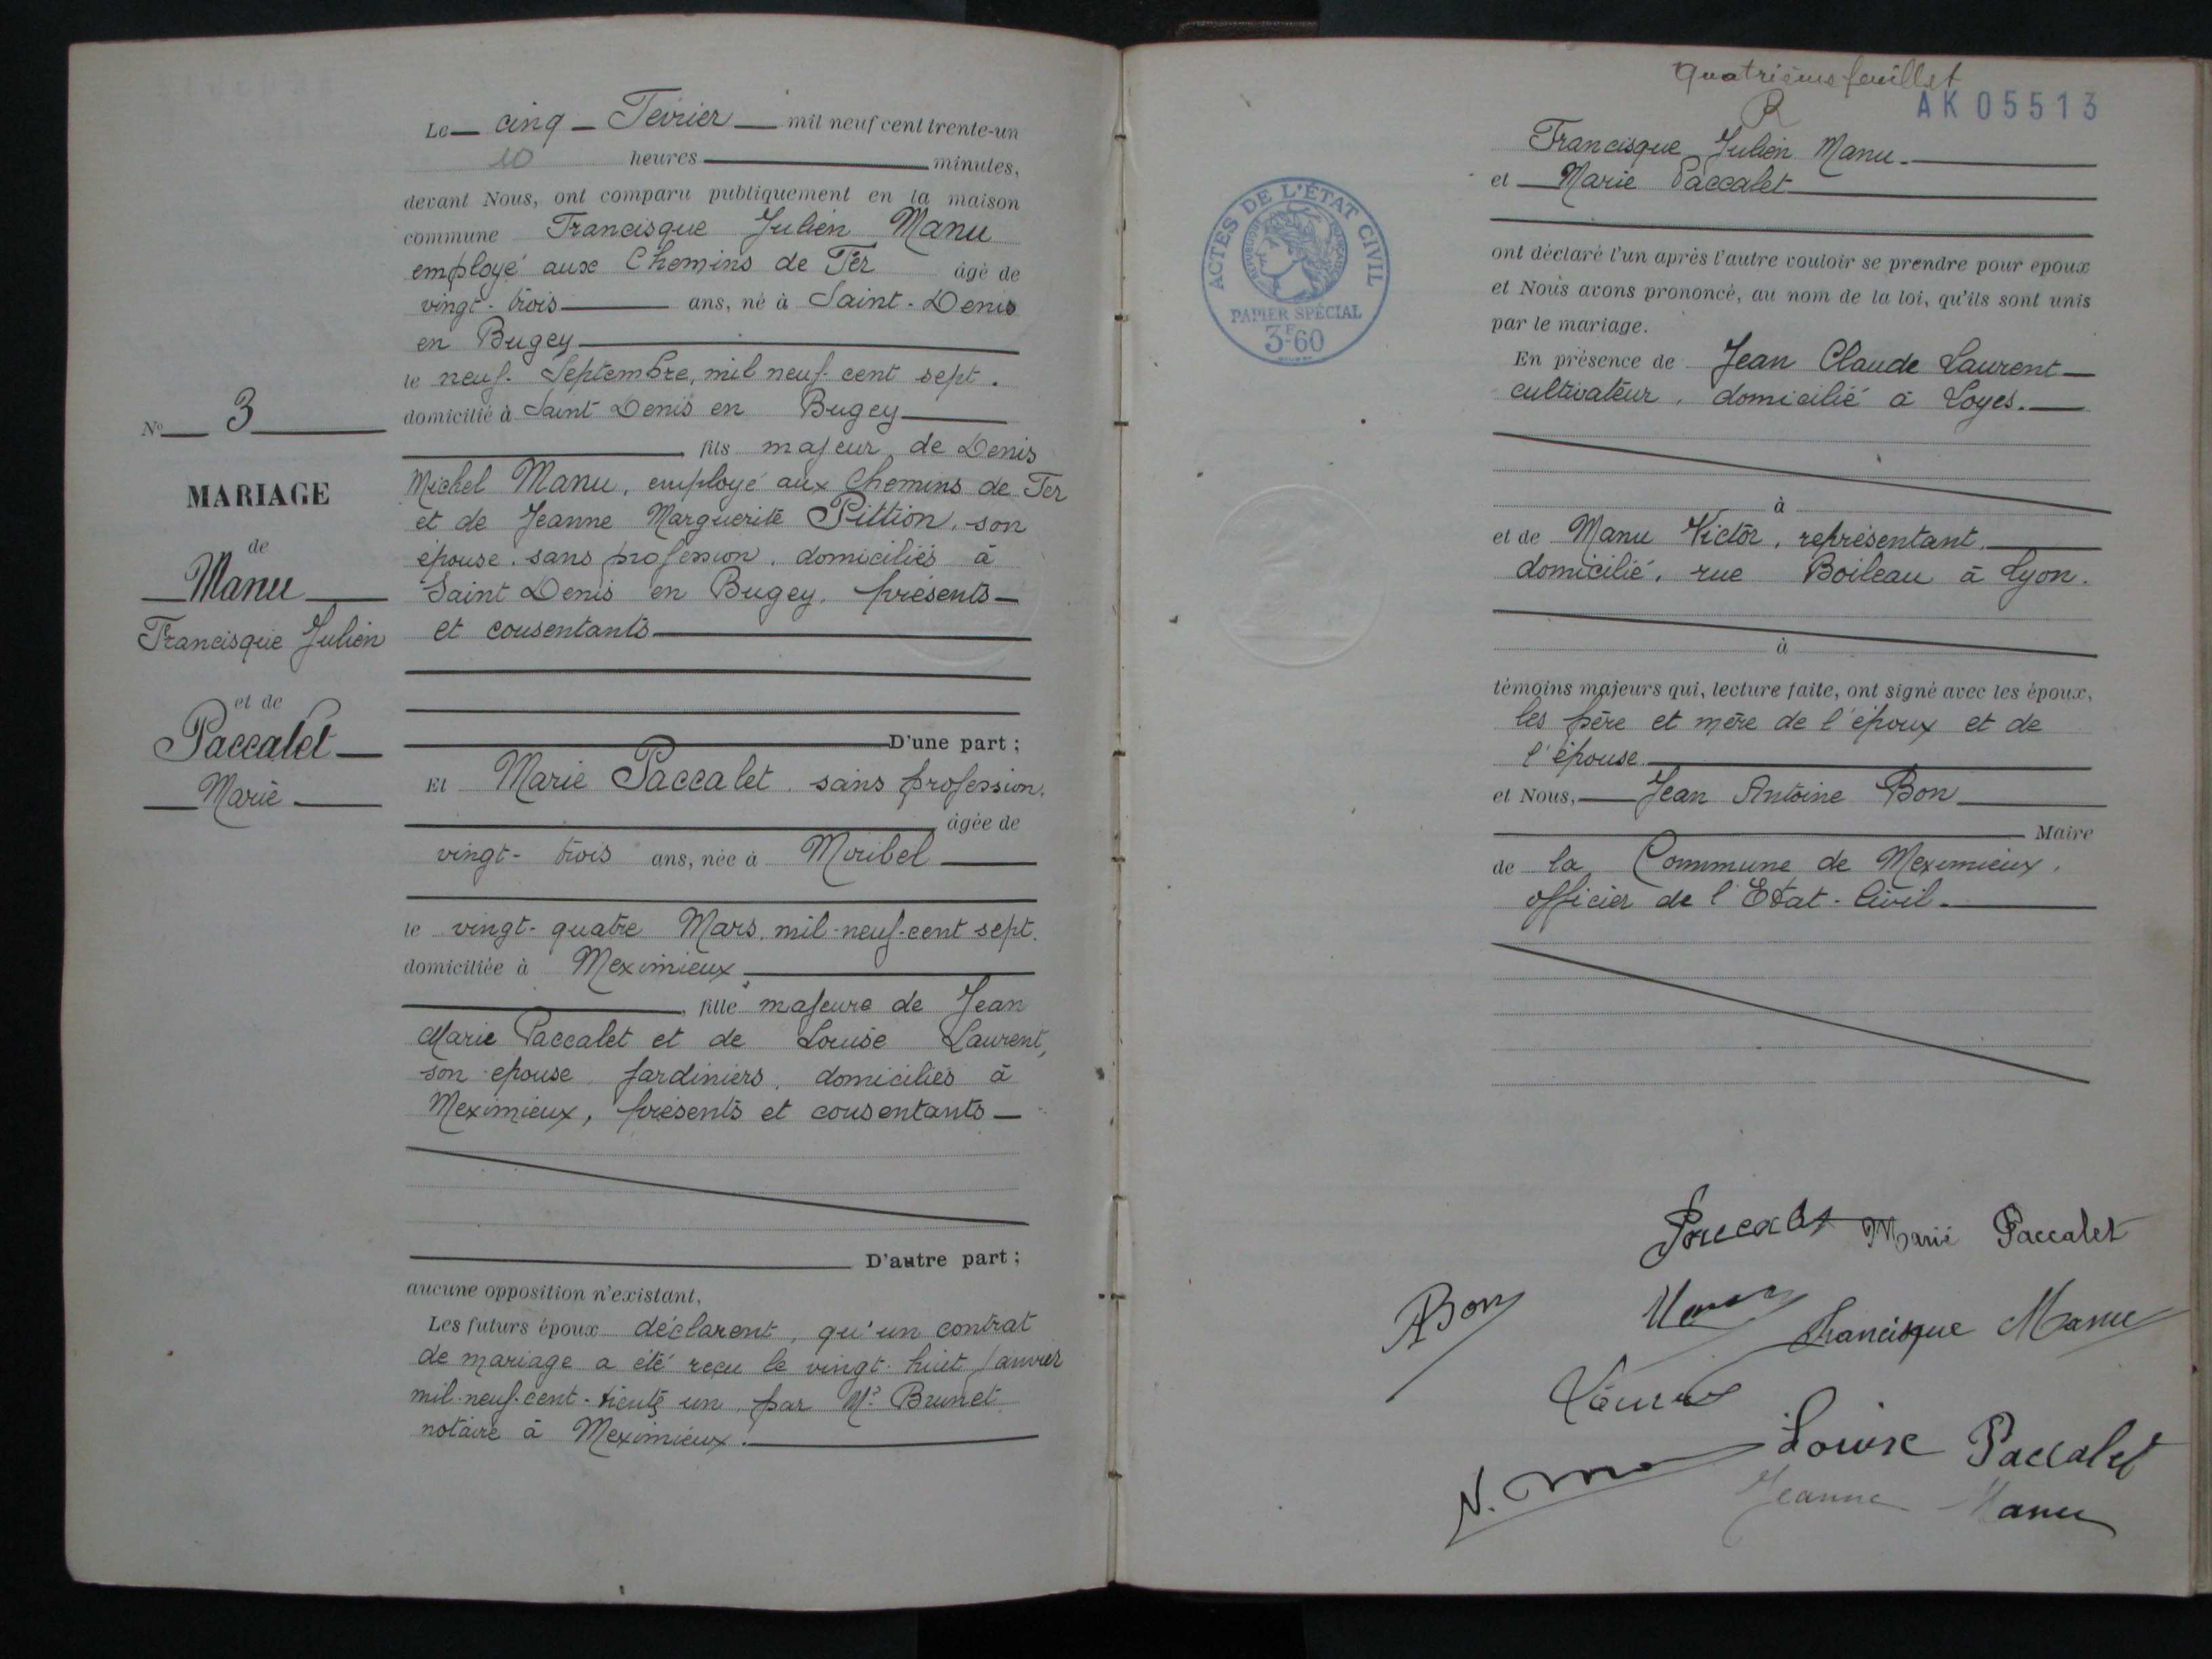 Le cinq Février mil neuf cent trente-un
10 heures minutes,
devant Nous, ont comparu publiquement en la maison
commune Francisque Julien Manu
employé aux Chemins de Fer âgé de
vingt-trois ans, né à Saint-Denis
en Bugey
le neuf Septembre, mil neuf cent sept.
domicilié à Saint Denis en Bugey
fils majeur, de Denis
Michel Manu, employé aux Chemins de Fer
et de Jeanne Marguerite Pittion, son
épouse, sans profession, domiciliés à
Saint Denis en Bugey, présents
et consentants
D'une part ;
Et Marie Paccalet sans profession,
âgée de
vingt-trois ans, née à Miribel
le vingt-quatre Mars, mil-neuf-cent sept.
domiciliée à Meximieux
, fille majeure de Jean
Marie Paccalet et de Louise Laurent,
son épouse jardiniers, domiciliés à
Meximieux, présents et consentants
D'autre part ;
aucune opposition n'existant,
Les futurs époux déclarent, qu'un contrat
de mariage a été reçu le vingt-huit Janvier
mil-neuf-cent-trente un par Me Brunet
notaire à Meximieux.
No 3
MARIAGE
de
Manu
Francisque Julien
et de
Paccalet
Marie
Quatrième feuillet
R
AK 05513
Francisque Julien Manu
et Marie Paccalet
ont déclaré l'un après l'autre vouloir se prendre pour époux
et Nous avons prononcé, au nom de la loi, qu'ils sont unis
par le mariage.
En présence de Jean Claude Laurent
cultivateur, domicilié à Loyes.
à
et de Manu Victor, représentant,
domicilié, rue Boileau à Lyon.
à
témoins majeurs qui, lecture faite, ont signé avec les époux,
les père et mère de l'époux et de
l'épouse
et Nous, Jean Antoine Bon
Maire
de la Commune de Meximieux,
officier de l'Etat-Civil
ACTES DE L'ÉTAT CIVIL
RÉPUBLIQUE FRANÇAISE
PAPIER SPÉCIAL
3F60
Paccalet Marie Paccalet
ABon
Francisque Manu
Louise Paccalet
Jeanne Manu